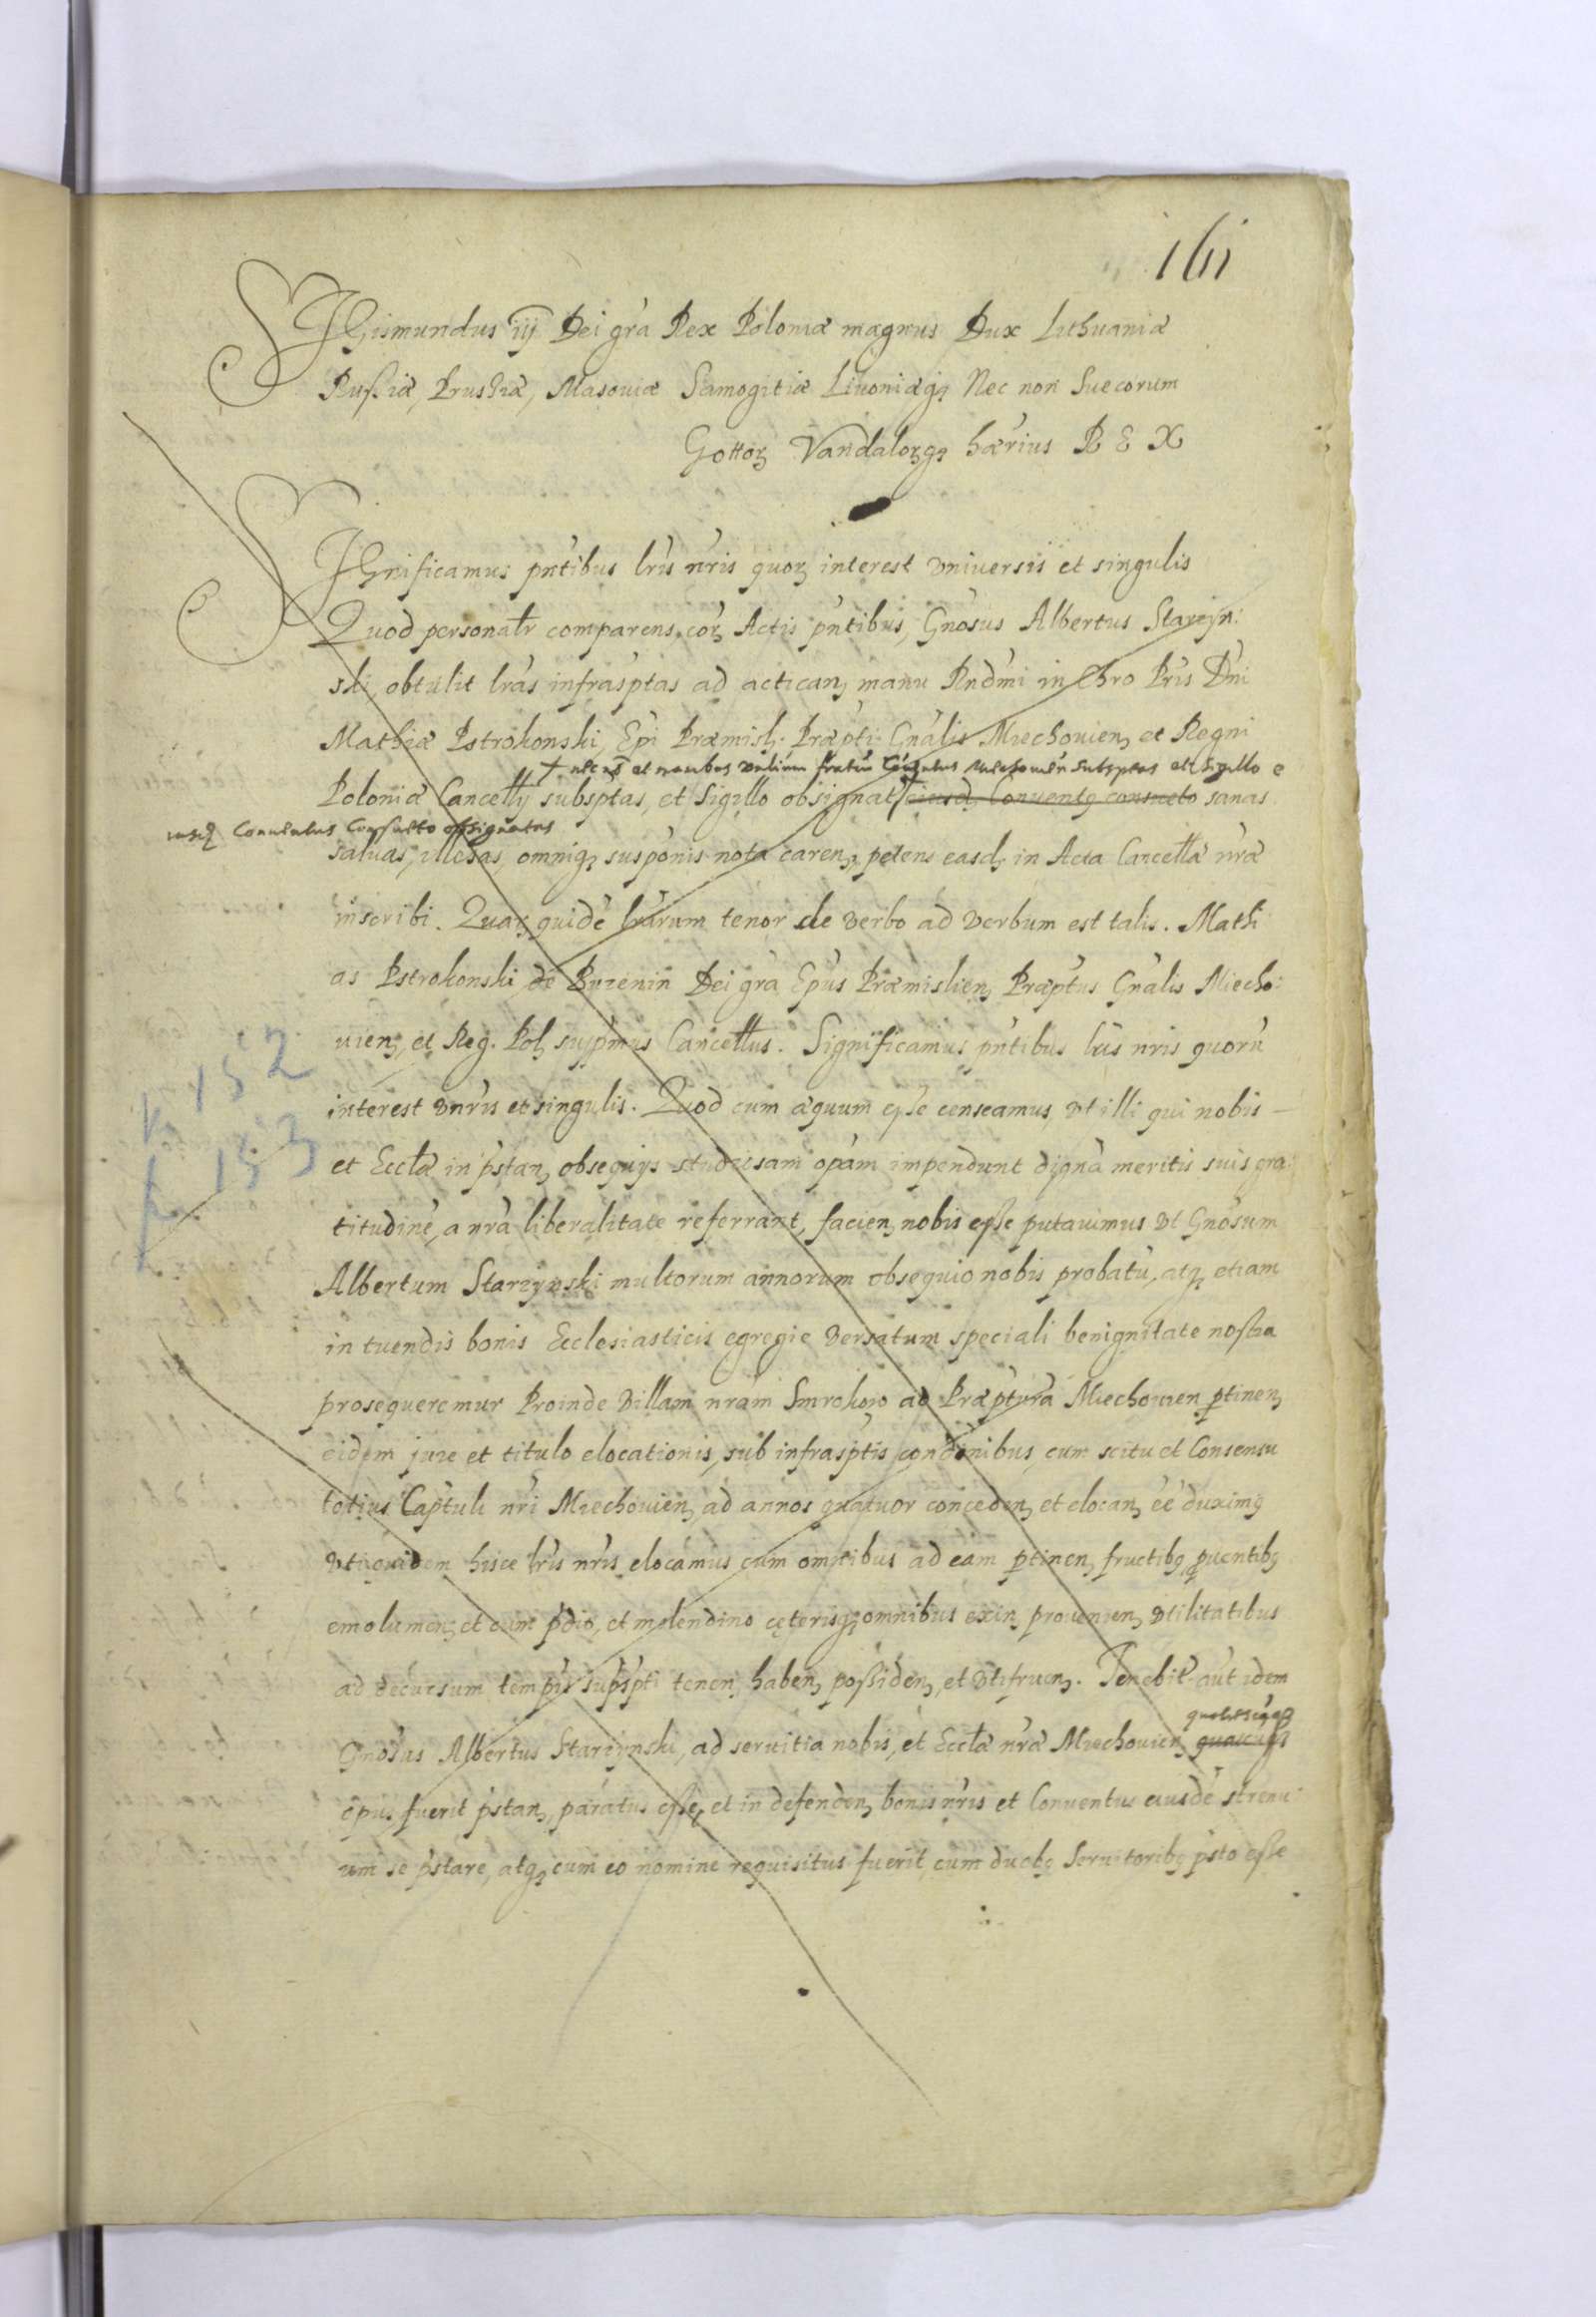 161
SIGismundus iij Dei gra Rex Poloniæ magnus Dux Lithuaniæ
Rußiæ, Prußiæ, Masouiæ Samogitiæ Liuoniæqȝ Nec non Suecorum
Gottoȝ Vandaloȝqȝ hærius REX
SIGnificamus pntibus lris nris quoȝ interest vniversis et singulis
Quod personalr comparens coȝ Actis pntibus, Gnosus Albertus Starzyn:
ski, obtulit lras infrasptas ad actican, manu Rndmi in Chro Pris Dni
Mathiæ Pstrokonski, Epi Præmisl. Præpti Gnalis Miechouien, et Regni
+ nec nō et manibus fratrū Conuentus Miechouien subsptas et Sigillo e
Poloniæ Cancellij subsptas, et Sigillo obsignat eiusd. Conventꝯ consueto sanas
iusdē Conuentus Consueto obsignatas
saluas, illęsas, omniqȝ susponis nota caren, petens easd, in Acta Cancellæ nræ
inscribi. Quaȝ quidē lrarum tenor de verbo ad verbum est talis. Mathi
as Pstrokonski de Buzenin Dei gra Epus Præmislien, Præptus Gnalis Miecho:
uien, et Reg. Pol, supmus Cancellus. Significamus pntibus lris nris quorū
k 152
interest vnris et singulis. Quod cum æquum eße censeamus, vt illi qui nobis –
k 153
et Ecclæ in pstan, obsequijs studiosam opam impendunt dignā meritis suis gra:
titudinē, a nra liberalitate referrant, facien, nobis eße putauimus vt Gnosum
Albertum Starzynski multorum annorum obsequio nobis probatū, atqȝ etiam
in tuendis bonis Ecclesiasticis egregie versatum speciali benignitate nostra
prosequeremur Proinde villam nram Smrokow ad Præpturā Miechouien ptinen,
eidem jure et titulo elocationis, sub infrasptis condonibus, cum scitu et Consensu
totius Captuli nri Miechouien, ad annos quatuor conceden, et elocan, eē duximꝯ
vti quidem hisce lris nris elocamus cum omnibus ad eam ptinen, fructibꝯ, puentibꝯ
emolumen, et cum pdio, et molendino cęterisqȝ omnibus exin, prouenien, vtilitatibus
ad decursum tempis supspti tenen, haben, poßiden, et vtifruen. Tenebitr aut idem
Gnosus Albertus Starzynski, ad seruitia nobis, et Ecclæ nræ Miechouien,
opus fuerit pstan, paratus eße, et in defenden, bonis nris et Conuentus eiusdē strenu
um se pstare, atqȝ cum eo nomine requisitus fuerit, cum duobꝯ Seruitoribꝯ psto eße